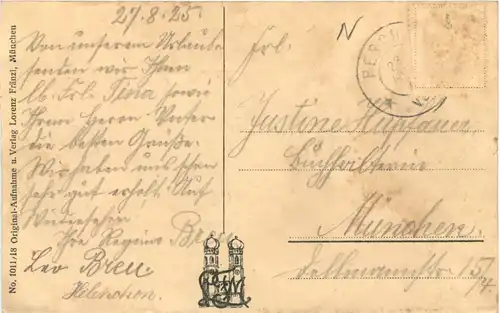 27.8.25.
Von unserem Urlaube
senden wir Ihnen
lb. Frl. Tina sowie
Ihrem Herrn Vater
die besten Grüße.
Wir haben uns schon
sehr gut erholt. Auf
Wiedersehen
Ihre Regina Breu
Leo Breu
Frl.
Justine
Buchhalterin
München.
15/4.
No. 1011/18 Original-Aufnahme u. Verlag Lorenz Fränzl, München